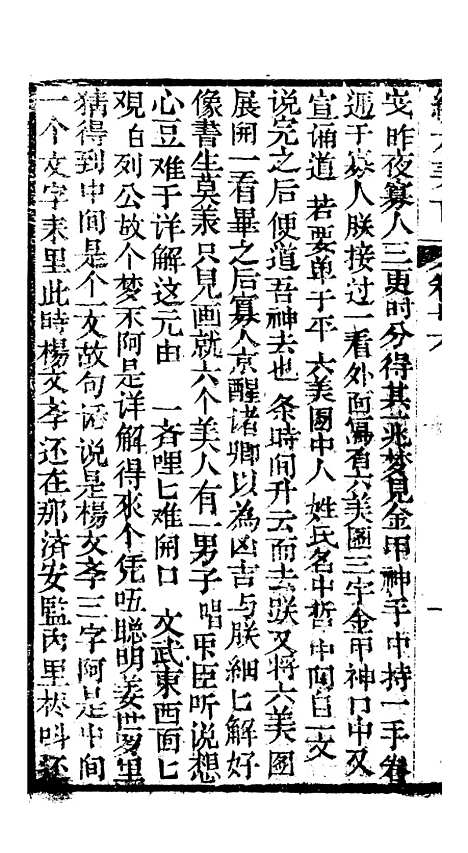 文昨夜寡人三更时分得其兆梦見金甲神手中持一手卷
逓于寡人朕接过一看外面寫有六美圖三字金甲神口中又
宣诵道 若要单于平 六美圖中人 姓氏名中哲 中间自一文
说完之后便道吾神去也 条時间升云而去朕又将六美圖
展開一看畢之后寡人京醒诸卿以為凶吉与朕細匕解好
像書生莫美只見画就六个美人有一男子 唱 㡳臣听说想
心豆难于详解这元由 一吝哩匕难開口 文武東西面匕
覌怕列公故个梦不阿是详解得來个凭㕶聪明姜世芳里
猜得到中间是个一文故句话说是楊文孝三字阿是中间
一个文字未里此時楊文孝还在那済安監内里桥呌还
卷十六